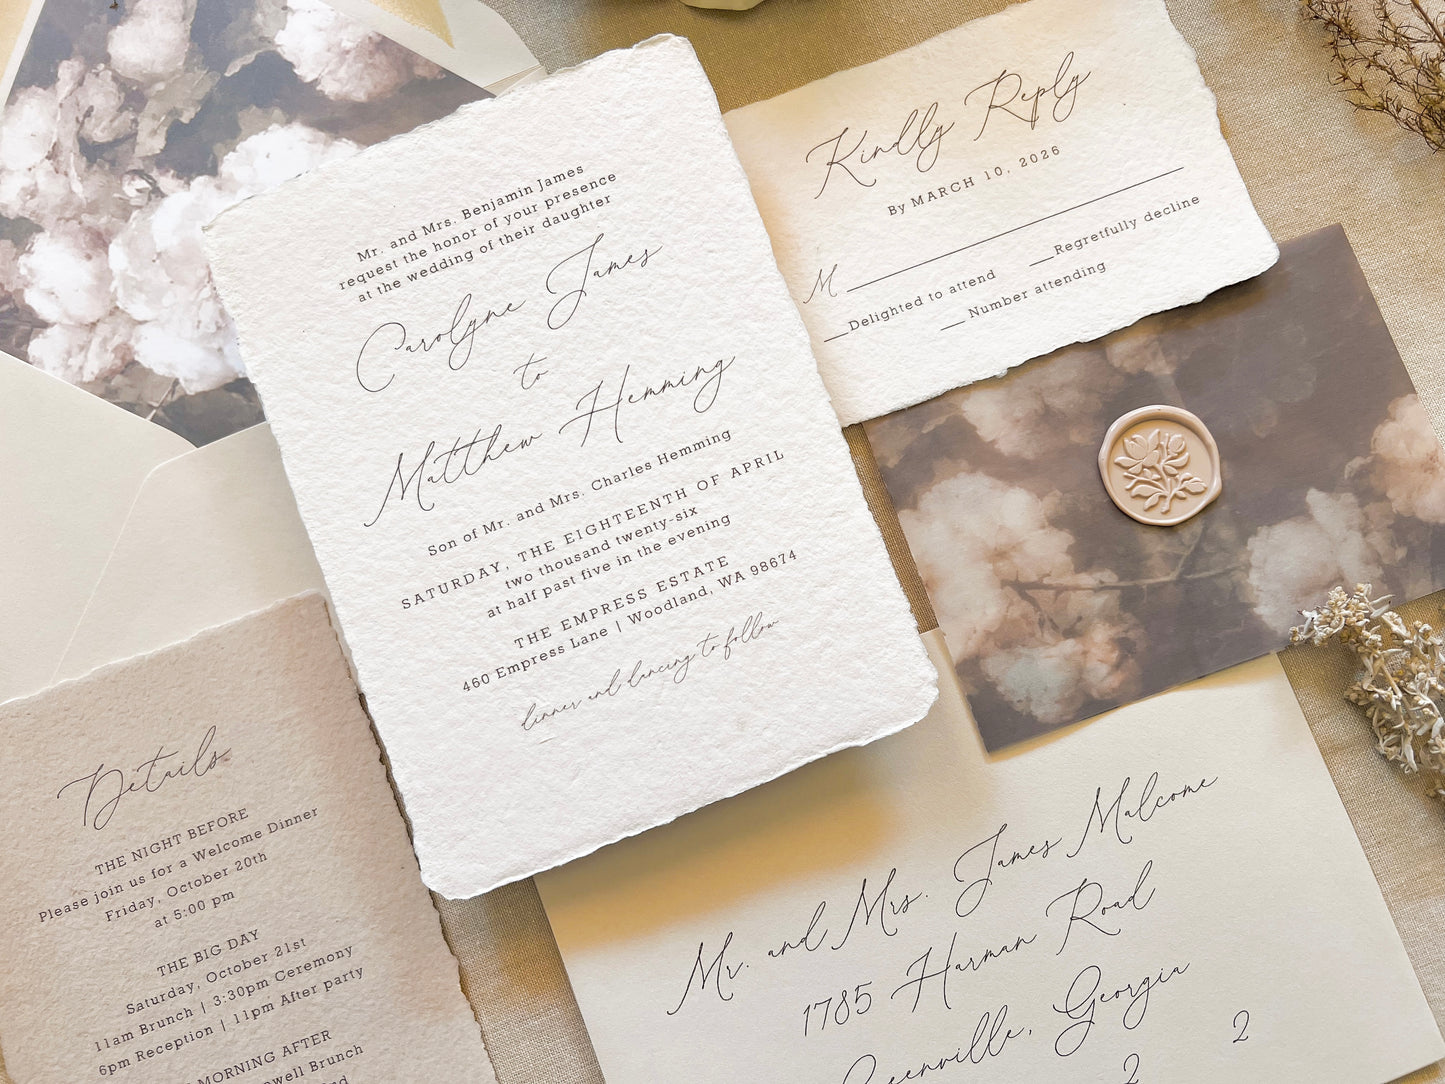 Mr. and Mrs. Benjamin James
request the honor of your presence
at the wedding of their daughter
Carolyne James
to
Matthew Hemming
Son of Mr. and Mrs. Charles Hemming
SATURDAY, THE EIGHTEENTH OF APRIL
two thousand twenty-six
at half past five in the evening
THE EMPRESS ESTATE
460 Empress Lane | Woodland, WA 98674
dinner and dancing to follow
Kindly Reply
By MARCH 10, 2026
M
__Delighted to attend __Regretfully decline
__ Number attending
Details
THE NIGHT BEFORE
Please join us for a Welcome Dinner
Friday, October 20th
at 5:00 pm
THE BIG DAY
Saturday, October 21st
11am Brunch | 3:30pm Ceremony
6pm Reception | 11pm After party
MORNING AFTER
Brunch
Mr. and Mrs. James Malcome
1785 Harman Road
Georgia
2 2